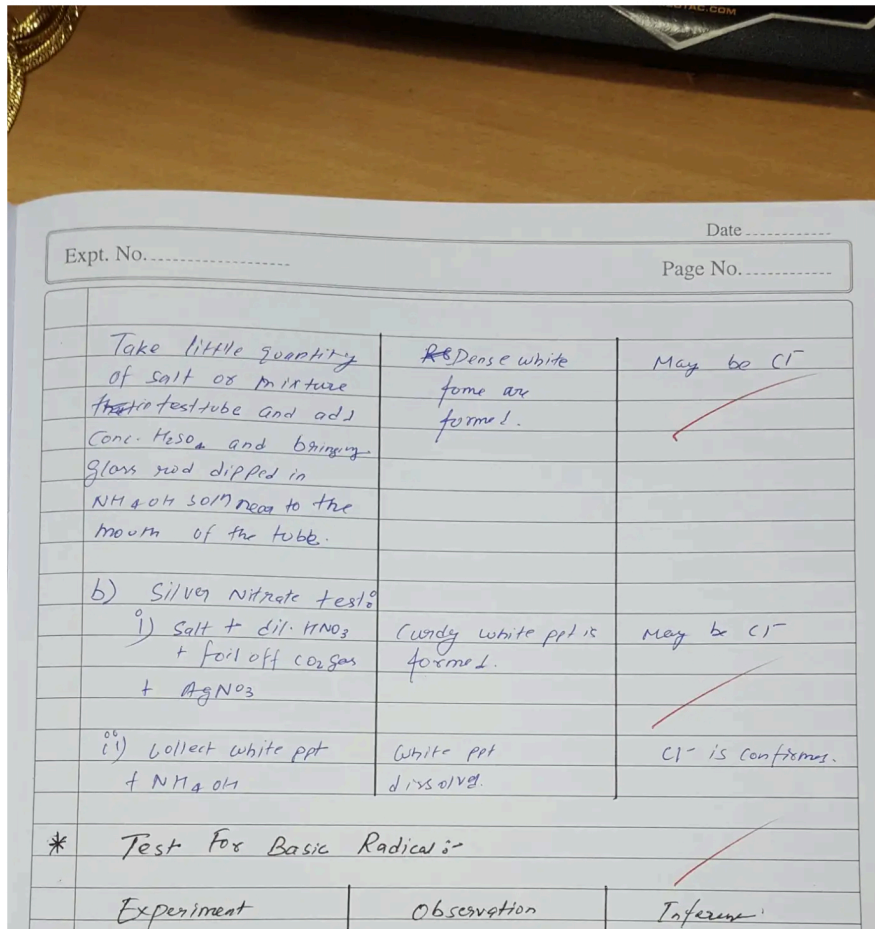 OTAC.COM
Date
Expt. No.
Page No.
Take little quantity
of salt or mixture
in testtube and add
Conc. H2SO4 and bringing
glass rod dipped in
NH4OH soln near to the
mouth of the tube.
Dense white
fome are
formed.
May be Cl-
b) Silver Nitrate test:
i) Salt + dil. HNO3
+ foil off CO2 gas
+ AgNO3
Curdy white ppt is
formed.
May be Cl-
ii) Collect white ppt
+ NH4OH
White ppt
dissolved.
Cl- is confirmes.
* Test For Basic Radical :-
Experiment
Observation